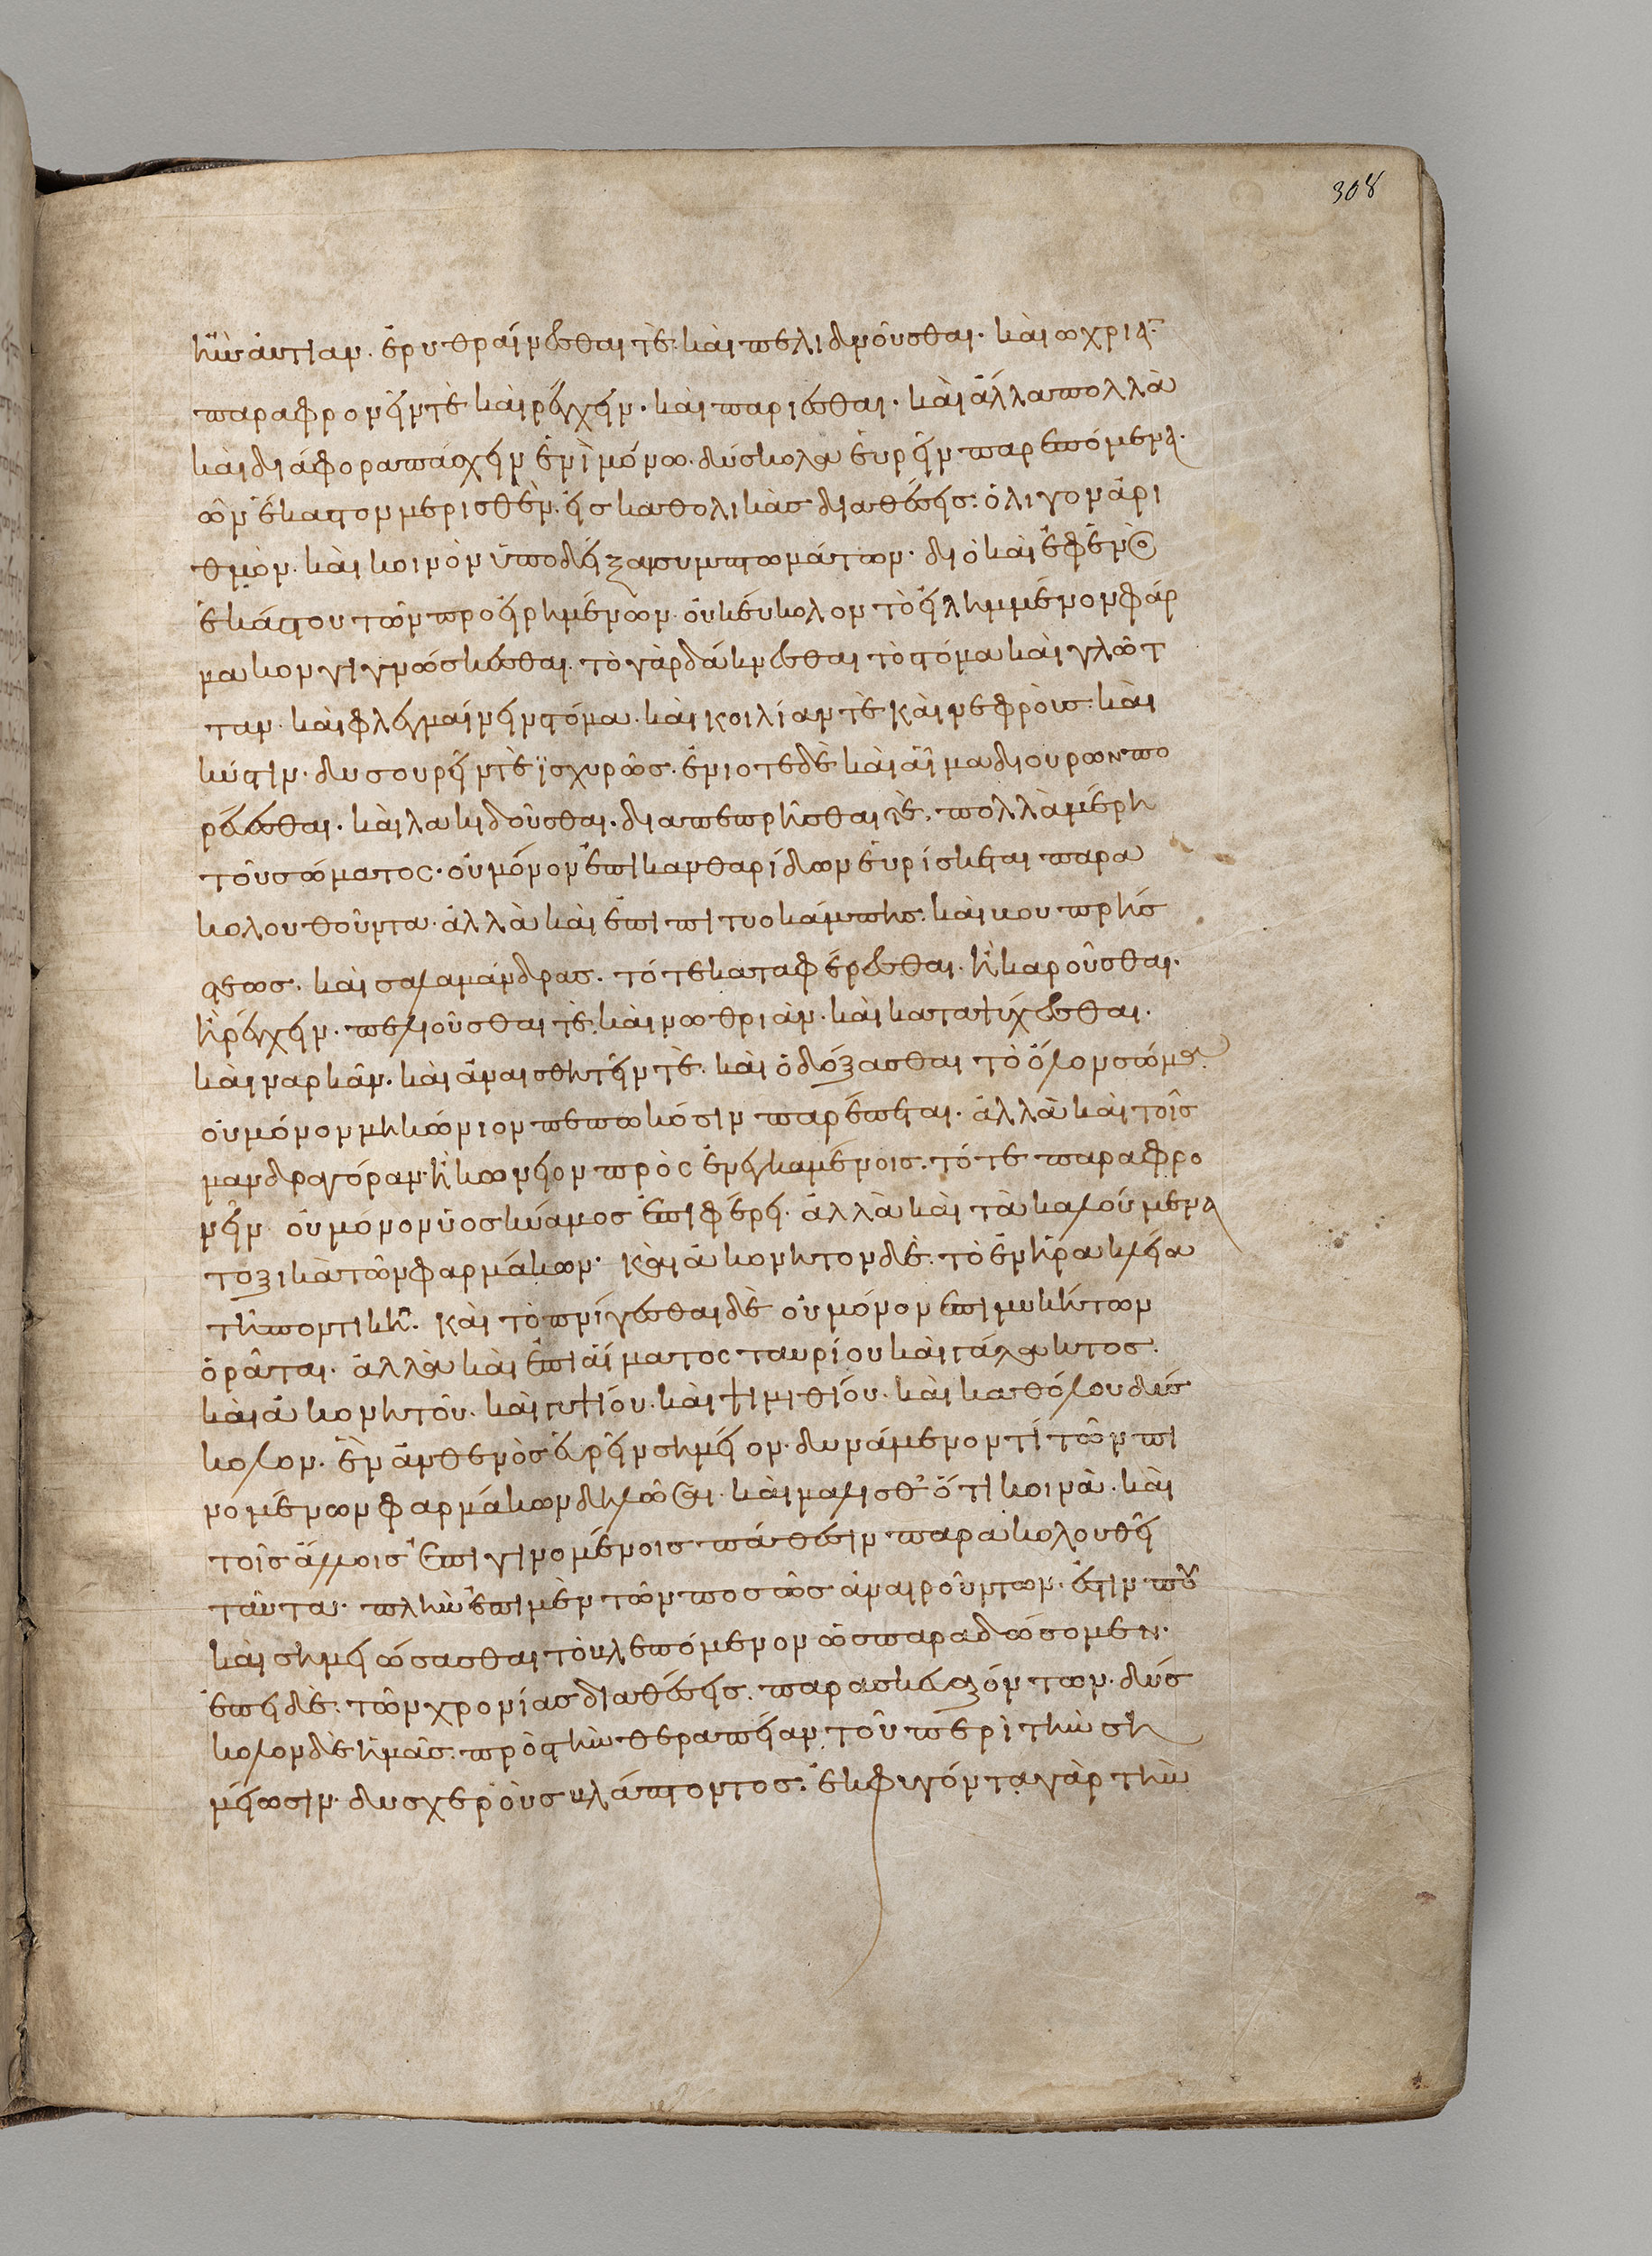 308
ἢ ναυτιᾶν. ἐρυθραίνεσθαι τὲ. καὶ πελιδνοῦσθαι. καὶ ὠχριᾶν.
παραφρονεῖν τὲ καὶ ῥέγχειν. καὶ παρίεσθαι. καὶ ἄλλα πολλὰ
καὶ διάφορα πάσχειν. ἑνὶ μόνω. δύσκολα εὑρεῖν παρεπόμενα.
ὧν ἕκαστον μερισθὲν. εἰς καθολικὰς διαθέσεις. ὀλίγον ἀρι
θμὸν. καὶ κοινὸν ὑποδείξαι συμπτωμάτων. διὸ καὶ ἐφ ἑνὸς
ἑκάστου τῶν προειρημένων. οὐκ εὔκολον τὸ εἰλημμένον φάρ
μακον γιγνώσκεσθαι. τὸ γὰρ δάκνεσθαι τὸ στόμα καὶ γλῶτ
ταν. καὶ φλεγμαίνειν στόμα. καὶ κοιλίαν τὲ καὶ νεφροὺς. καὶ
κύστιν. δυσουρεῖν τὲ ἰσχυρῶς. ἐνίοτε δὲ καὶ αἷμα δι οὔρων πο
ρεύεσθαι. καὶ λακιδοῦσθαι. διαπεπρῆσθαι τὲ. πολλὰ μέρη
τοῦ σώματος. οὐ μόνον ἐπὶ κανθαρίδων εὑρίσκεται παρα
κολουθοῦντα. ἀλλὰ καὶ ἐπὶ πιτυοκάμπης. καὶ βουπρήσ
τεως. καὶ σαλαμάνδρας. τό τε καταφέρεσθαι. ἢ καροῦσθαι.
ἢ ῥέγχειν. πελιοῦσθαι τὲ. καὶ νωθριᾶν. καὶ καταψύχεσθαι.
καὶ ναρκᾶν. καὶ ἀναισθητεῖν τὲ. καὶ ὀδάξασθαι τὸ ὅλον σῶμα.
οὐ μόνον μηκώνιον πεπωκόσιν παρέπεται. ἀλλὰ καὶ τοῖς
μανδραγόραν. ἢ κώνειον προς ἐνεγκαμένοις. τό τε παραφρο
νεῖν οὐ μόνον ὑοσκύαμος ἐπιφέρει. ἀλλὰ καὶ τὰ καλούμενα
τοξικὰ τῶν φαρμάκων. καὶ ἀκόνητον δὲ. τὸ ἐν ἡρακλεία
τῆ ποντικῆ. καὶ τὸ πνίγεσθαι δὲ οὐ μόνον ἐπὶ μυκήτων
ὁρᾶται. ἀλλὰ καὶ ἐπὶ αἵματος ταυρίου καὶ γάλακτος.
καὶ ἀκονητοῦ. καὶ γυψίου. καὶ ψιμιθίου. καὶ καθόλου δύσ
κολον. ἐὰν ἀνθ ἑνὸς εὑρεῖν σημεῖον. δυνάμενον τί τῶν πι
νομένων φαρμάκων δηλῶσαι. καὶ μάλισθ ὅτι κοινὰ. καὶ
τοῖς ἄλλοις ἐπιγινομένοις πάθεσιν παρακολουθεῖ
ταῦτα. πλὴν ἐπὶ μὲν τῶν ποσῶς ἀναιρούντων. ἔστιν που
καὶ σημειώσασθαι τὸ βλεπόμενον ὡς παραδώσομεν.
ἐπεὶ δὲ. τῶν χρονίας διαθέσεις. παρασκευαζόντων. δύσ
κολον δὲ ἡμᾶς. πρὸς τὴν θεραπείαν. τοῦ περὶ τὴν ση
μείωσιν. δυσχεροὺς βλάπτοντος. ἐκφυγόντα γὰρ τὴν